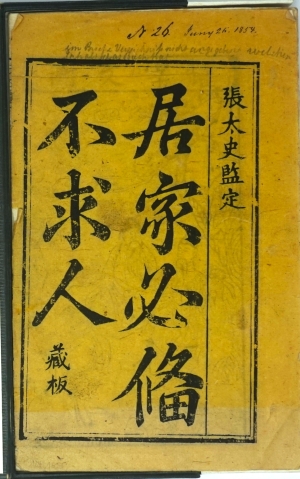 N 26. Juny 26. 1854.
張太史監定
居家必備
不求人
藏板